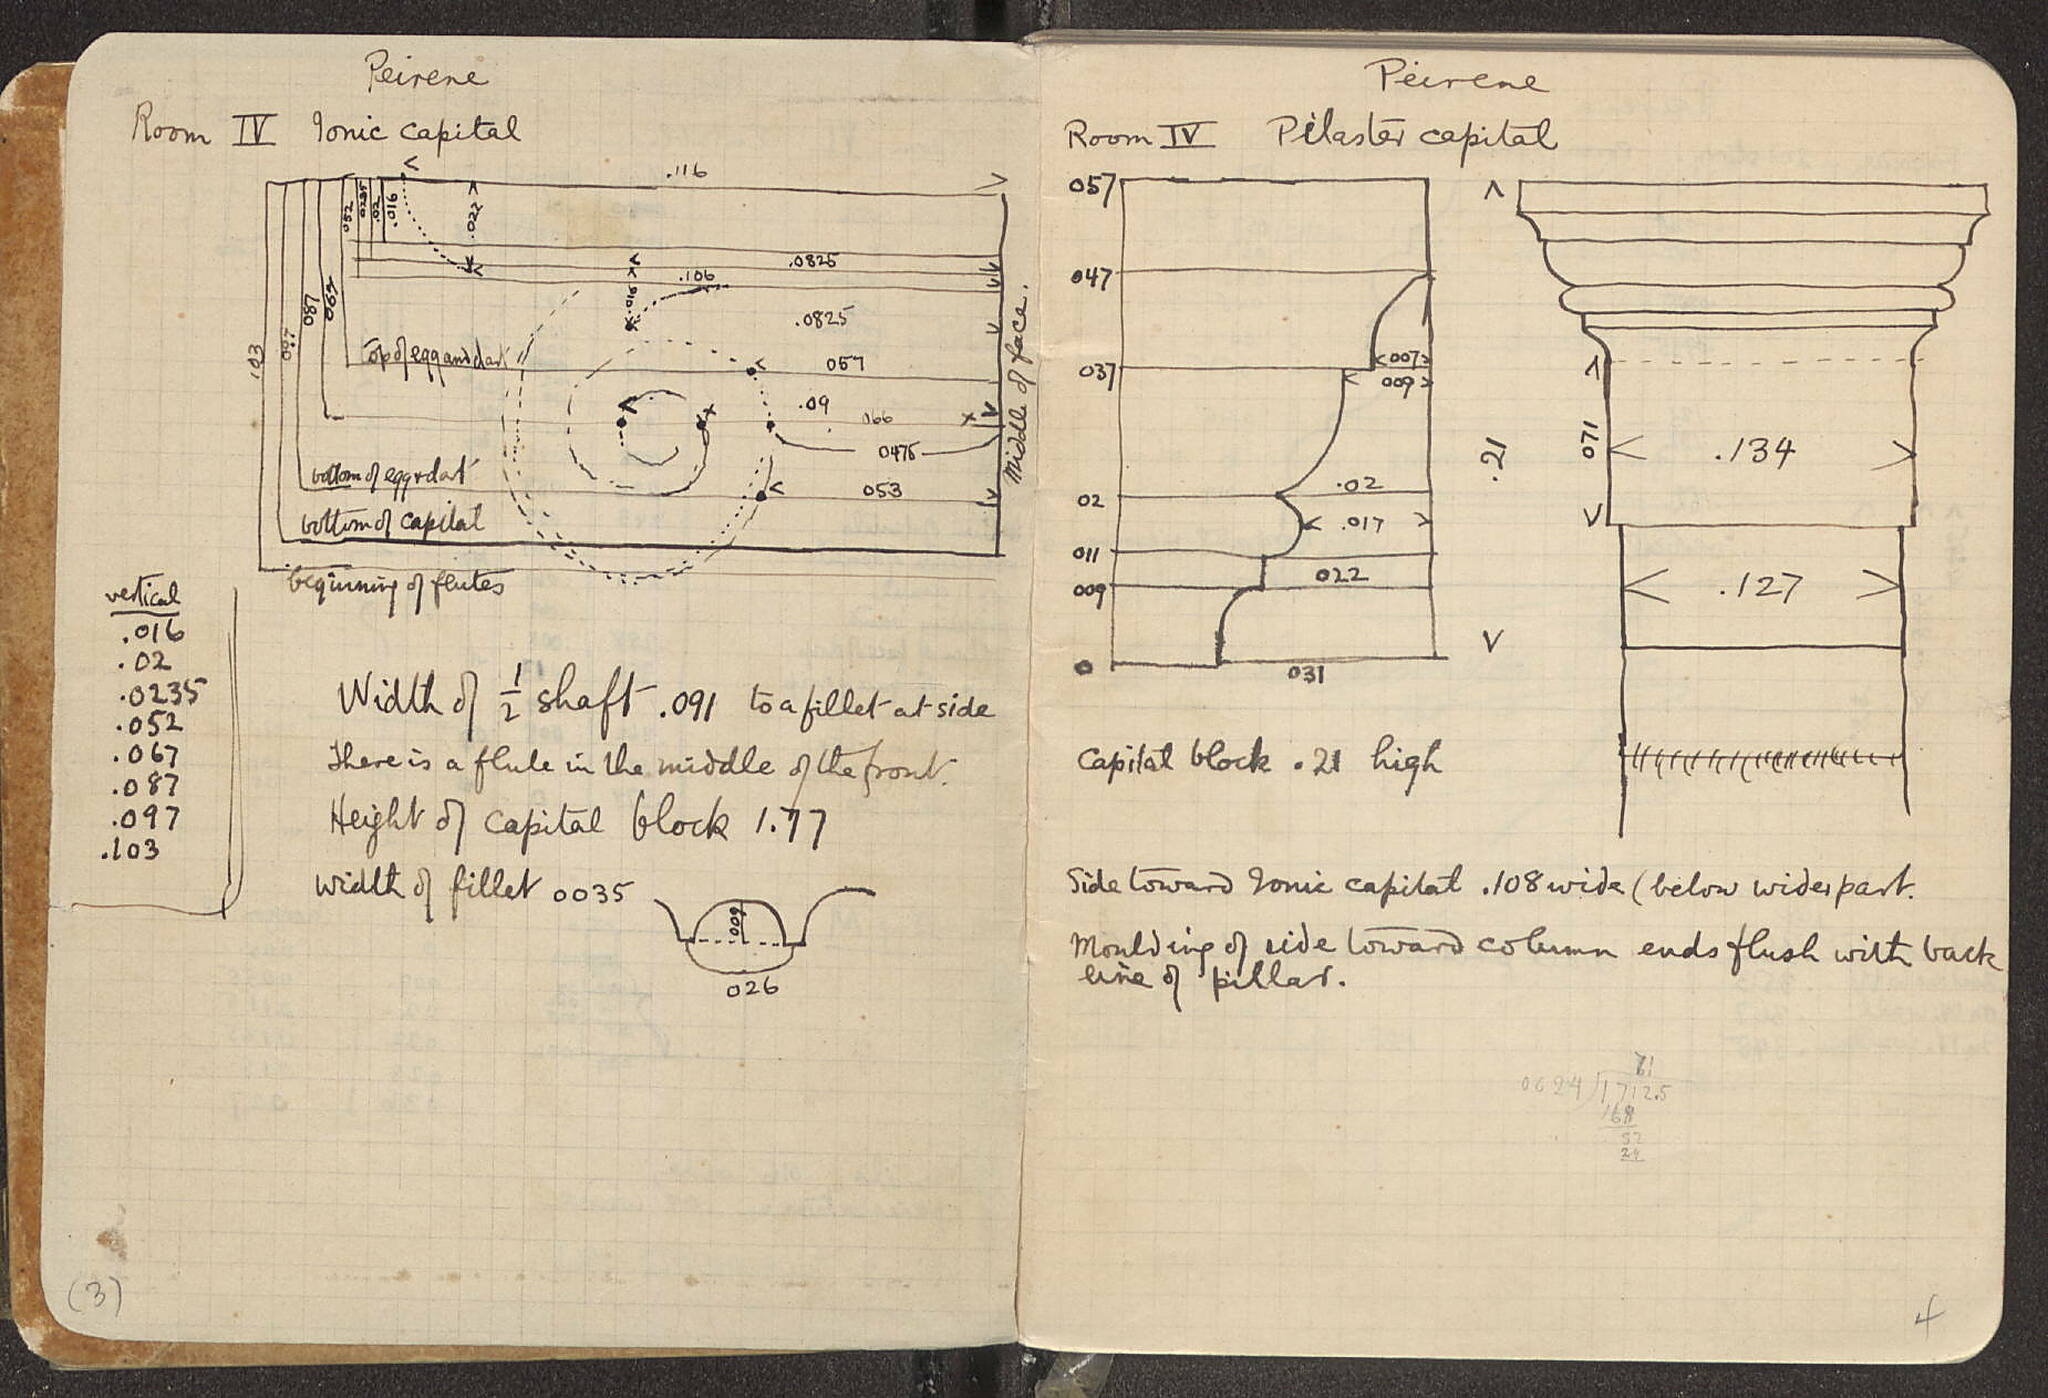 Peirene
Room IV Ionic capital
.116
.052
.0235
.02
.016
.022
.0825
.106
.016
.0825
103
097
087
067
top of egg and dart
057
.09
066
0475
Middle of face.
bottom of egg & dart
053
bottom of capital
beginning of flutes
vertical
.016
.02
.0235
.052
.067
.087
.097
.103
Width of 1/2 shaft .091 to a fillet at side
There is a flute in the middle of the front.
Height of capital block 1.77
width of fillet 0035
009
026
(3)
Peirene
Room IV Pilaster capital
057
047
037
007
009
02
.02
.017
011
022
009
0
031
.21
071
.134
.127
Capital block .21 high
Side toward Ionic capital .108 wide (below wider part.
Moulding of side toward column ends flush with back
line of pillar.
1712.5
168
4